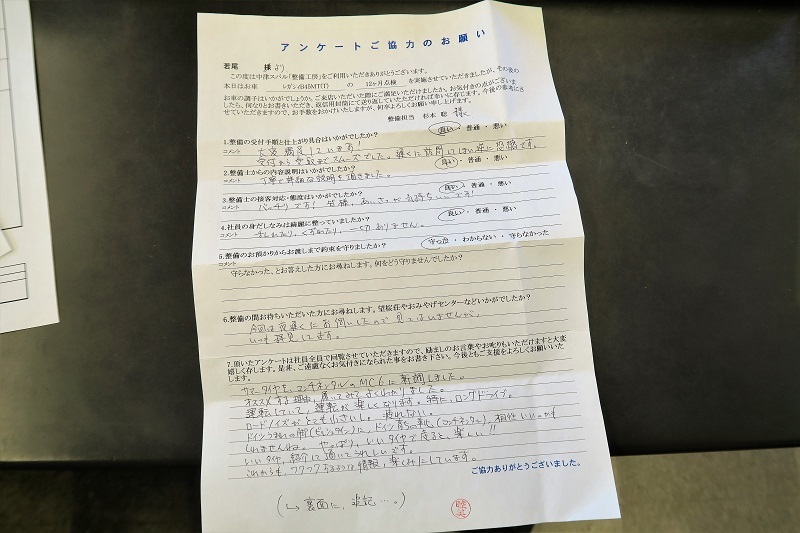 アンケートご協力のお願い
若尾 様より
この度は中津スバル「整備工房」をご利用いただきありがとうございます。
本日はお車 レガシィB4 5MT(T) の 12ヶ月点検 を実施させていただきましたが、その後の
お車の調子はいかがでしょうか。ご来店いただいた際にご満足いただけましたか。お気付きの点がござい
ましたら、何なりとお書きいただき、返信用封筒にて送り返していただければ幸いに存じます。今後の参考にさ
せていただきますので、お手数をおかけいたしますが、何卒よろしくお願い申し上げます。
整備担当 杉本 聡 様
1.整備の受付手順と仕上がり具合はいかがでしたか? 良い・普通・悪い
コメント 大変満足しています!
受付から受取までスムーズでした。遅くに訪問してしまい逆に恐縮です。
2.整備士からの内容説明はいかがでしたか? 良い・普通・悪い
コメント 丁寧で詳細な説明を頂きました。
3.整備士の接客対応・態度はいかがでしたか? 良い・普通・悪い
コメント バッチリです! 皆様、あいさつが気持ちいいです!
4.社員の身だしなみは綺麗に整っていましたか? 良い・普通・悪い
コメント みだれたり、くずれたり、一切ありません。
5.整備のお預かりからお渡しまで約束を守りましたか? 守った・わからない・守らなかった
コメント
守らなかった、とお答えした方にお尋ねします。何をどう守りませんでしたか?
6.整備の間お待ちいただいた方にお尋ねします。望桜荘やおみやげセンターなどいかがでしたか?
今回は夜遅くにお伺いしたので見てはいませんが、
いつも拝見してます。
7.頂いたアンケートは社員全員で回覧させていただきますので、励ましのお言葉やお叱りもいただけますと大変
嬉しく存じます。是非、ご遠慮なくお気付きになられた事をお書き下さい。今後ともご支援をよろしくお願いいた
します。
サマータイヤを、コンチネンタルのMC6に新調しました。
オススメする理由、履いてみてよくわかりました。
運転していて、運転が楽しくなります。特に、ロングドライブ。
ロードノイズがとても小さいし、疲れない。
ドイツうまれの脚(ビルシュタイン)に、ドイツ育ちの靴(コンチネンタル)、相性いいのかも
しれませんね。やっぱり、いいタイヤで走ると、楽しい!!
いいタイヤ、紹介して頂いてうれしいです。
これからも、ワクワクするような情報、楽しみにしています。
ご協力ありがとうございました。
(↪裏面に、追記…。)